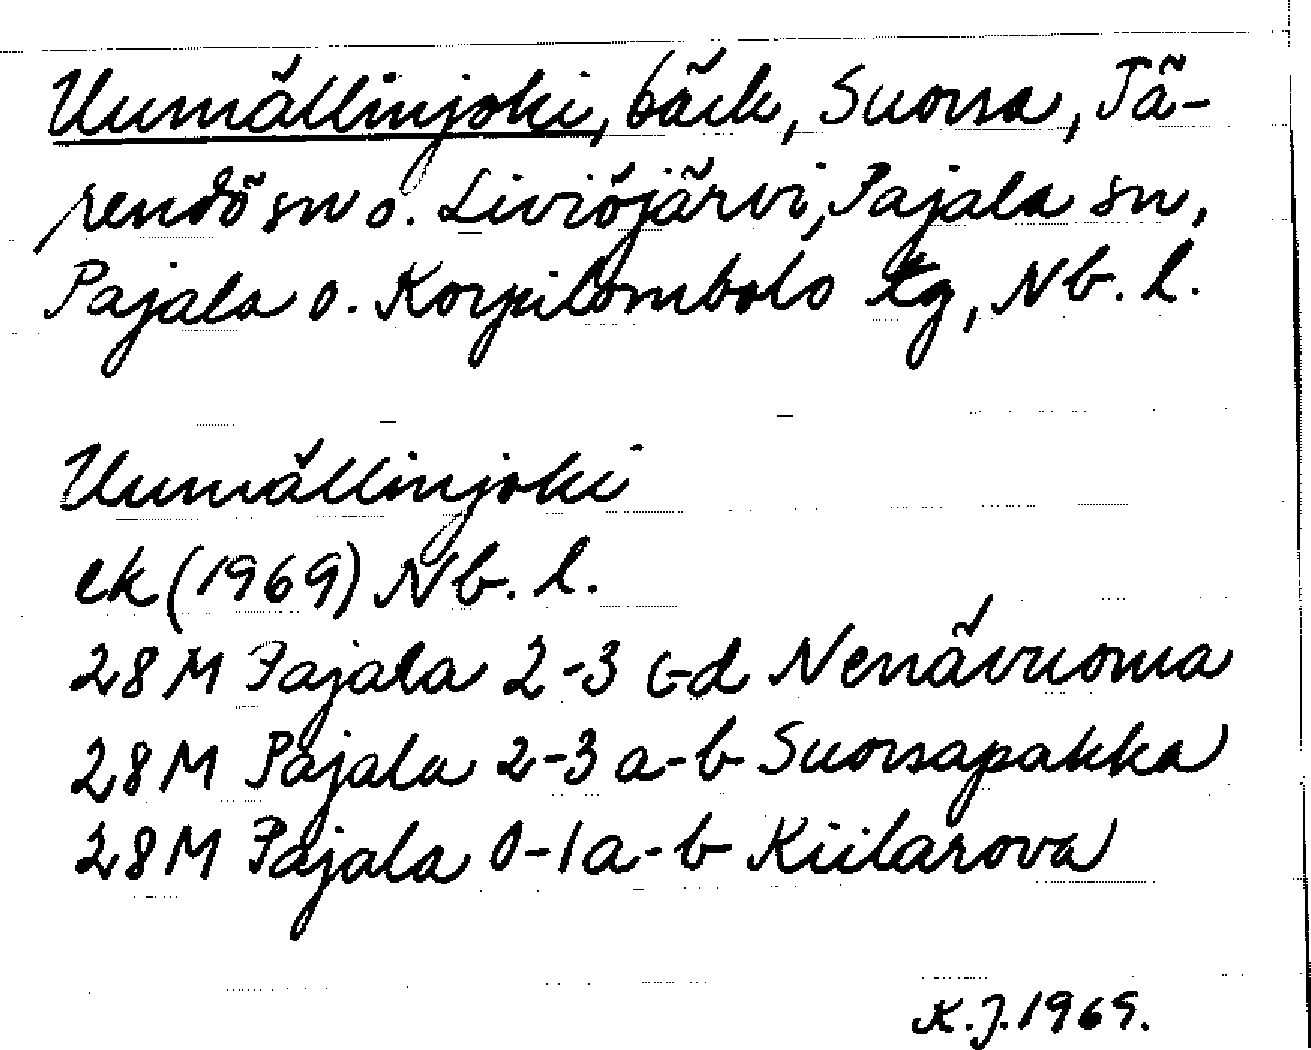 Uumällinjoki, bäck, Suorsa, Tä-
rendö sn o. Liviöjärvi, Pajala sn,
Pajala o. Korpilombolo tg, Nb. l.
Uumällinjoki
ek (1969) Nb. l.
28M Pajala 2-3 c-d Nenävuoma
28M Pajala 2-3 a-b Suorsapakka
28M Pajala 0-1 a-b Kiilarova
K.J. 1969.